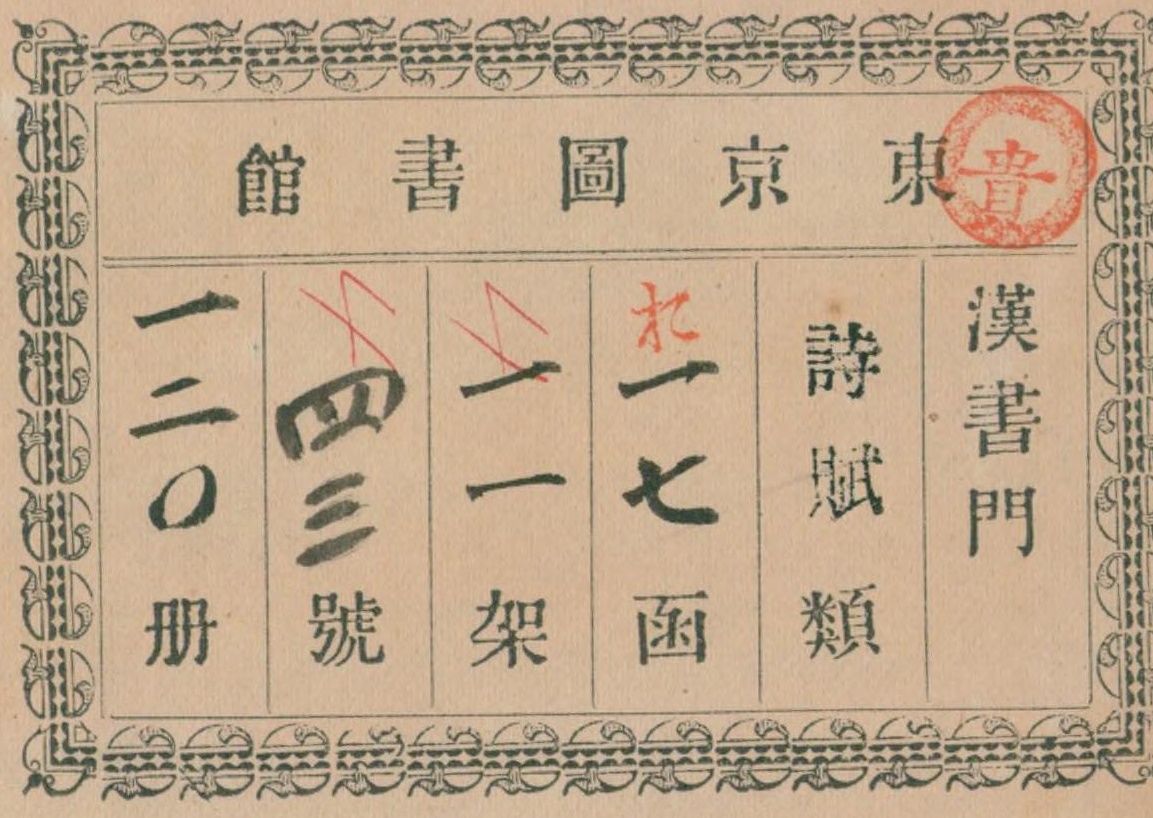 東京圖書館
貴
漢書門
詩賦類
一七函
一一架
四三號
一二〇册